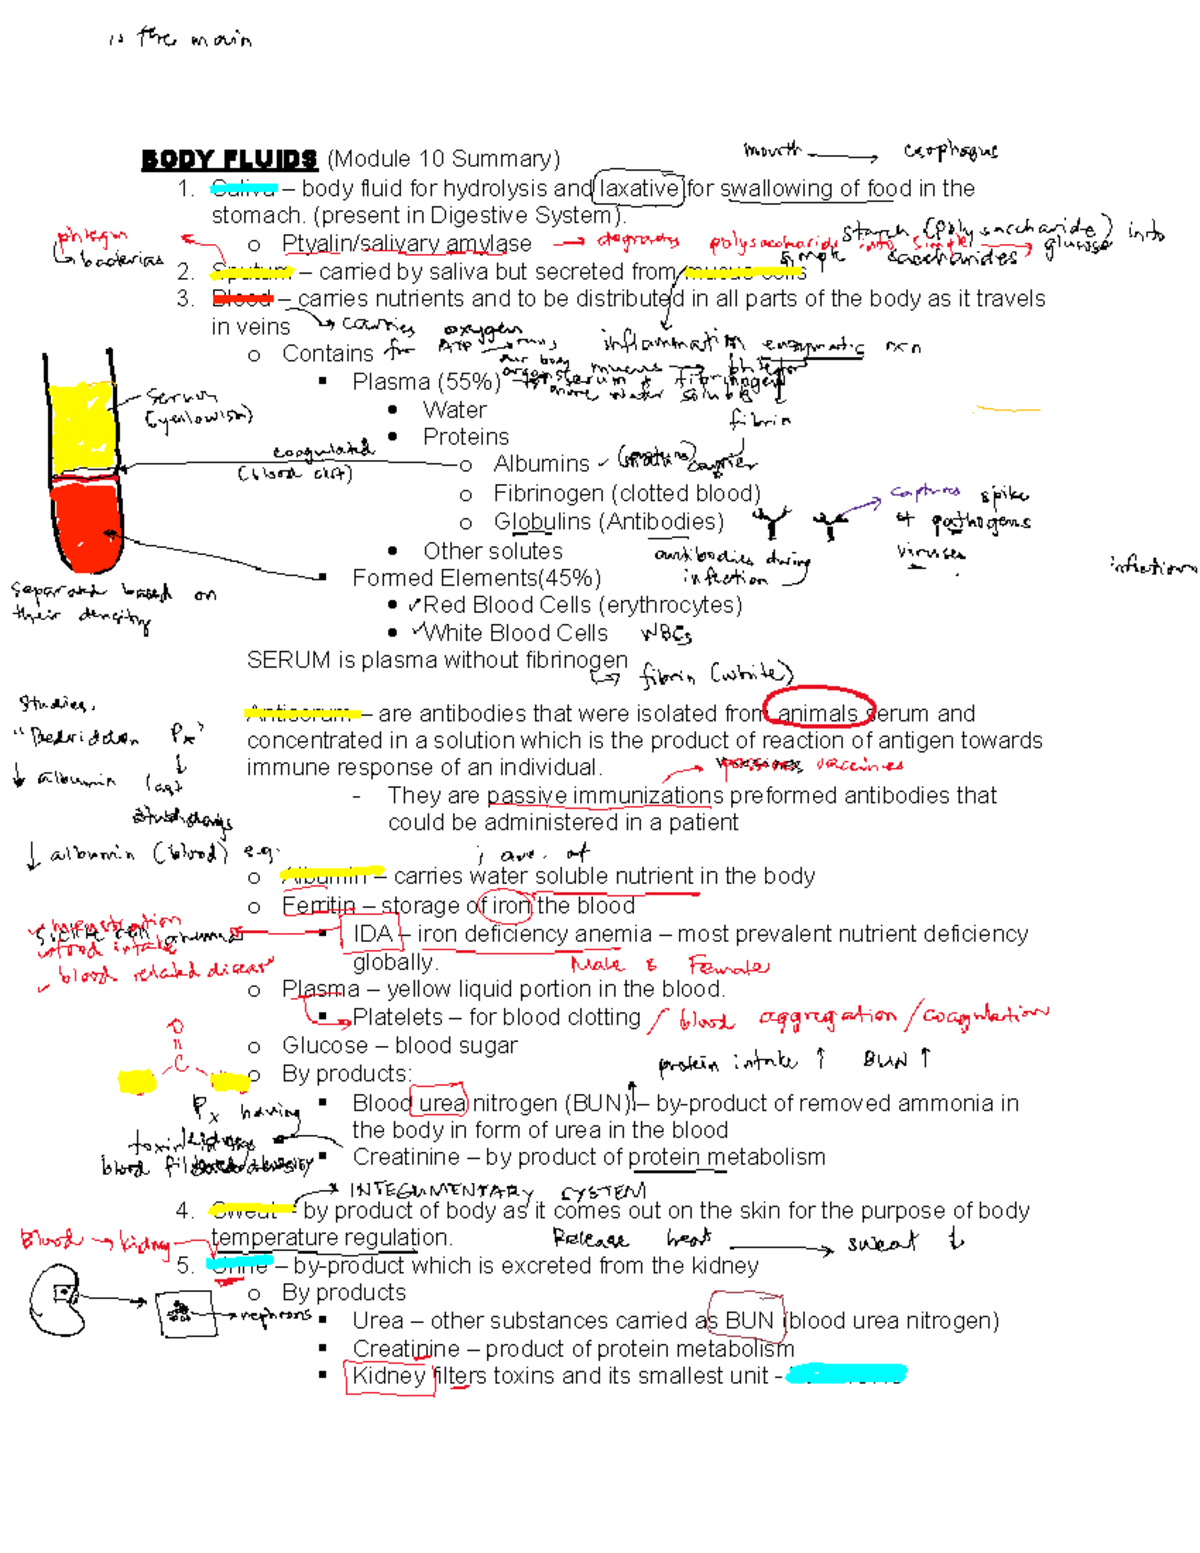 is the main
BODY FLUIDS (Module 10 Summary)
mouth → esophagus
1. Saliva – body fluid for hydrolysis and laxative for swallowing of food in the
stomach. (present in Digestive System).
o Ptyalin/salivary amylase → degrades polysaccharide into simple → glucose
starch (polysaccharide) into
simple saccharides
phlegm
bacterias
2. Sputum – carried by saliva but secreted from mucus cells
3. Blood – carries nutrients and to be distributed in all parts of the body as it travels
in veins
→ carries oxygen
for ATP → runs
our body
organs
inflammation enzymatic rxn
mucus →
o Contains
▪ Plasma (55%)
serum + fibrinogen
more water soluble
fibrin
• Water
• Proteins
serum
(yellowish)
coagulated
(blood clot)
o Albumins
carrier
o Fibrinogen (clotted blood)
o Globulins (Antibodies)
→ captures spike
of pathogens
viruses
antibodies during
infection
infection
• Other solutes
▪ Formed Elements(45%)
separated based on
their density
• ✓Red Blood Cells (erythrocytes)
• ✓White Blood Cells WBCs
SERUM is plasma without fibrinogen
→ fibrin (white)
Studies.
"Bedridden Px"
↓ albumin
↓ albumin (blood) e.g.
Antiserum – are antibodies that were isolated from animals serum and
concentrated in a solution which is the product of reaction of antigen towards
immune response of an individual.
→ vaccines
- They are passive immunizations preformed antibodies that
could be administered in a patient
o Albumin – carries water soluble nutrient in the body
o Ferritin – storage of iron the blood
menstration
food intake
blood related disease
▪ IDA – iron deficiency anemia – most prevalent nutrient deficiency
globally.
Male & Female
o Plasma – yellow liquid portion in the blood.
▪ Platelets – for blood clotting / blood aggregation / coagulation
o Glucose – blood sugar
O
C
protein intake ↑ BUN ↑
o By products:
▪ Blood urea nitrogen (BUN) – by-product of removed ammonia in
the body in form of urea in the blood
Px having
kidney
▪ Creatinine – by product of protein metabolism
→ INTEGUMENTARY SYSTEM
4. Sweat - by product of body as it comes out on the skin for the purpose of body
temperature regulation.
Release heat → sweat ↓
Blood → kidney
5. Urine – by-product which is excreted from the kidney
o By products
→ nephrons
▪ Urea – other substances carried as BUN (blood urea nitrogen)
▪ Creatinine – product of protein metabolism
▪ Kidney filters toxins and its smallest unit -